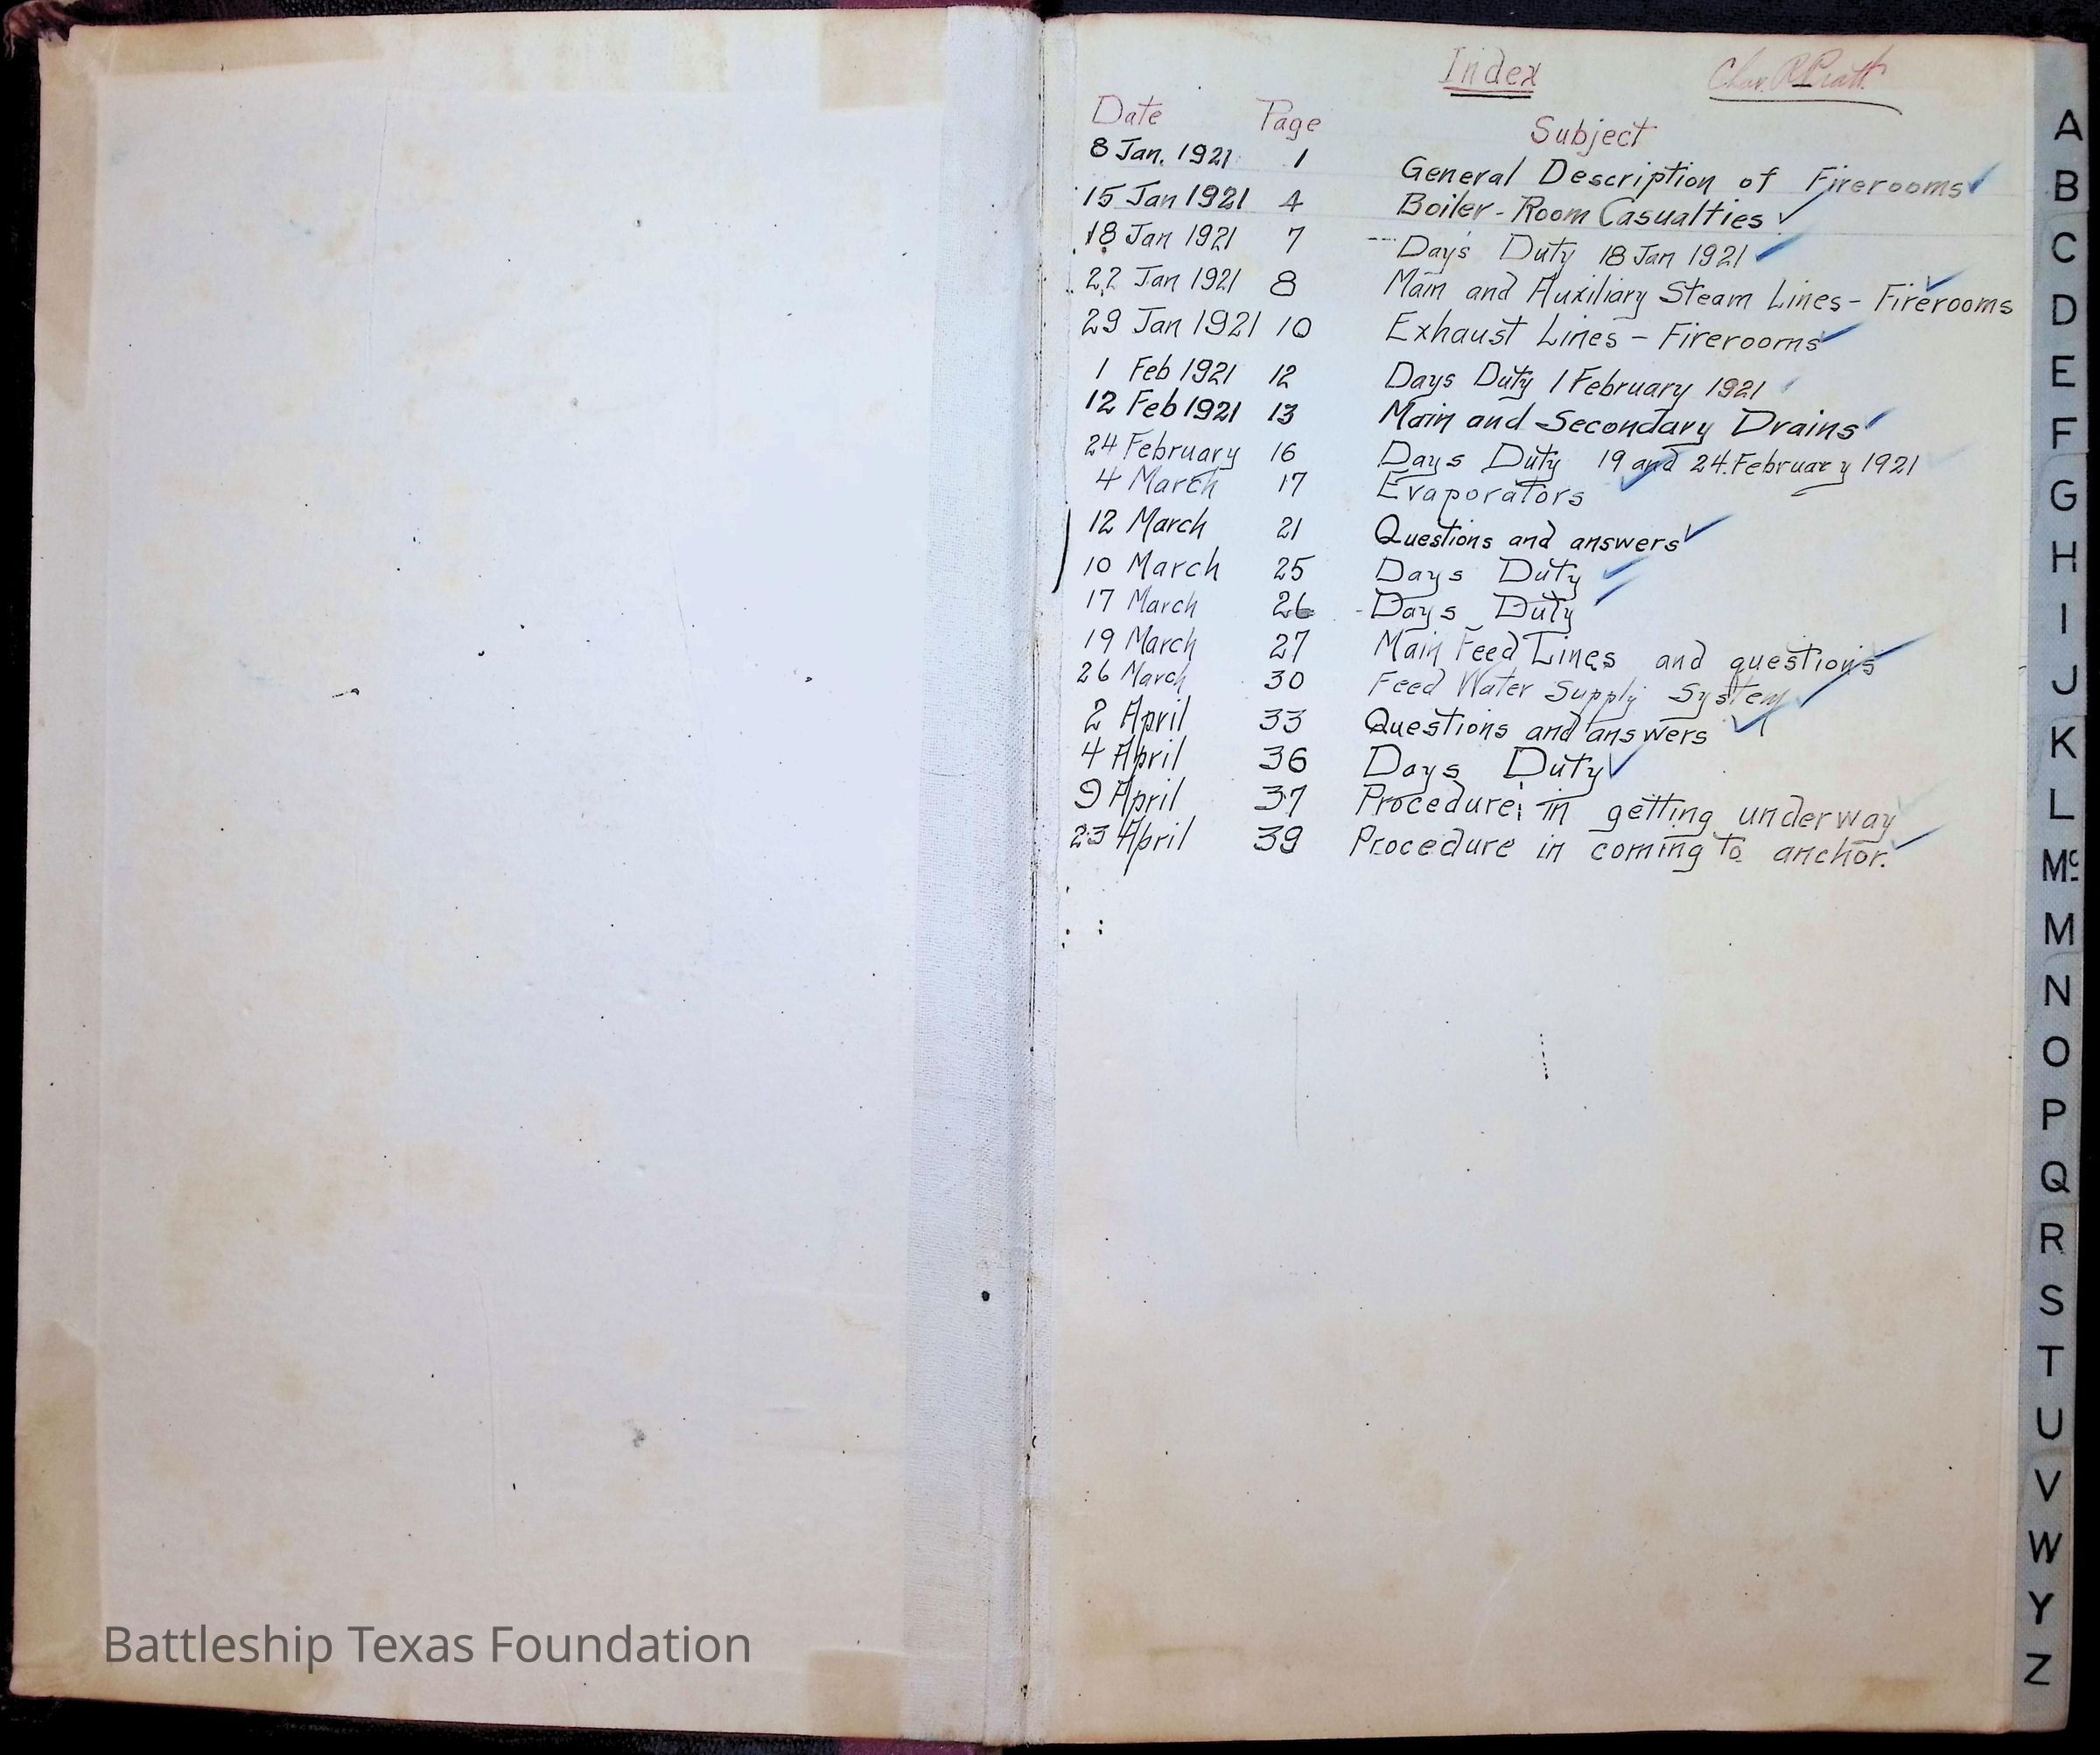 Index
Chas. R. Pratt
Date Page Subject
8 Jan. 1921 1 General Description of Firerooms
15 Jan 1921 4 Boiler-Room Casualties
18 Jan 1921 7 Day's Duty 18 Jan 1921
22 Jan 1921 8 Main and Auxiliary Steam Lines - Firerooms
29 Jan 1921 10 Exhaust Lines - Firerooms
1 Feb 1921 12 Days Duty 1 February 1921
12 Feb 1921 13 Main and Secondary Drains
24 February 16 Days Duty 19 and 24. February 1921
4 March 17 Evaporators
12 March 21 Questions and answers
10 March 25 Days Duty
17 March 26 Days Duty
19 March 27 Main Feed Lines and questions
26 March 30 Feed Water Supply System
2 April 33 Questions and answers
4 April 36 Days Duty
9 April 37 Procedure in getting underway
23 April 39 Procedure in coming to anchor.
A
B
C
D
E
F
G
H
I
J
K
L
Mc
M
N
O
P
Q
R
S
T
U
V
W
Y
Z
Battleship Texas Foundation